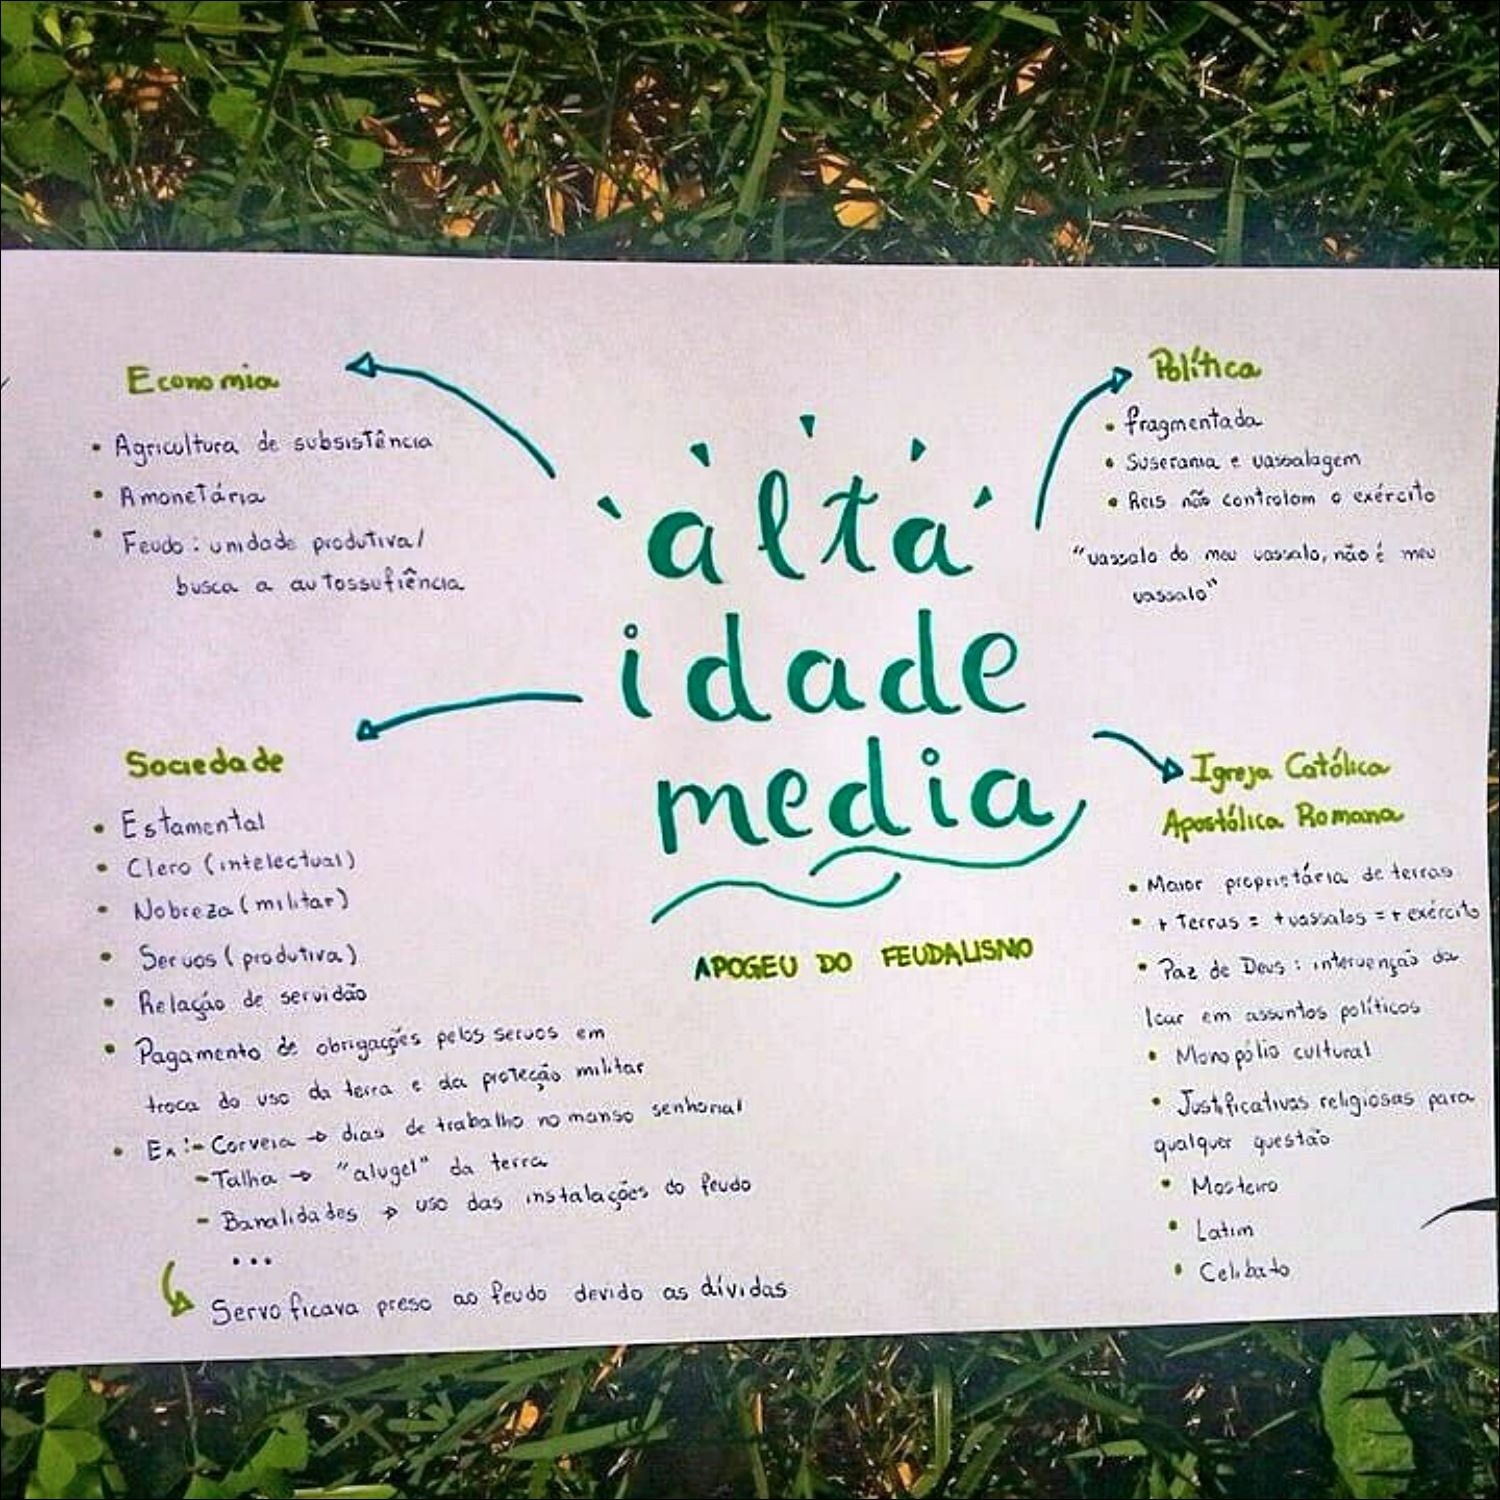 alta
idade
media
APOGEU DO FEUDALISMO
Economia
• Agricultura de subsistência
• Amonetária
• Feudo: unidade produtiva/
busca a autossufiência
Sociedade
• Estamental
• Clero (intelectual)
• Nobreza (militar)
• Servos (produtiva)
• Relação de servidão
• Pagamento de obrigações pelos servos em
troca do uso da terra e da proteção militar
• Ex:- Corveia → dias de trabalho no manso senhorial
- Talha → "alugel" da terra
- Banalidades → uso das instalações do feudo
...
Servo ficava preso ao feudo devido as dívidas
Política
• fragmentada
• Suserania e vassalagem
• Reis não controlam o exército
"vassalo do meu vassalo, não é meu
vassalo"
Igreja Católica
Apostólica Romana
• Maior proprietária de terras
• + Terras = + vassalos = + exército
• Paz de Deus: intervenção da
Icar em assuntos políticos
• Monopólio cultural
• Justificativas religiosas para
qualquer questão
• Mosteiro
• Latim
• Celibato